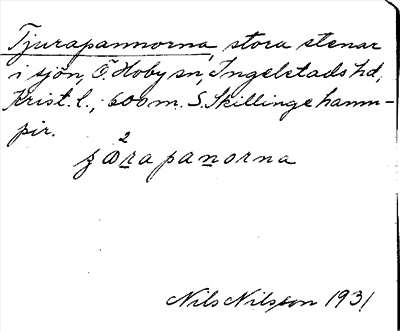 Tjurapannorna, stora stenar
i sjön, Ö. Hoby sn, Ingelstads hd,
Krist. l.; 600 m. S. Skillinge hamn-
pir.
2
ʒörapanorna
Nils Nilsson 1931